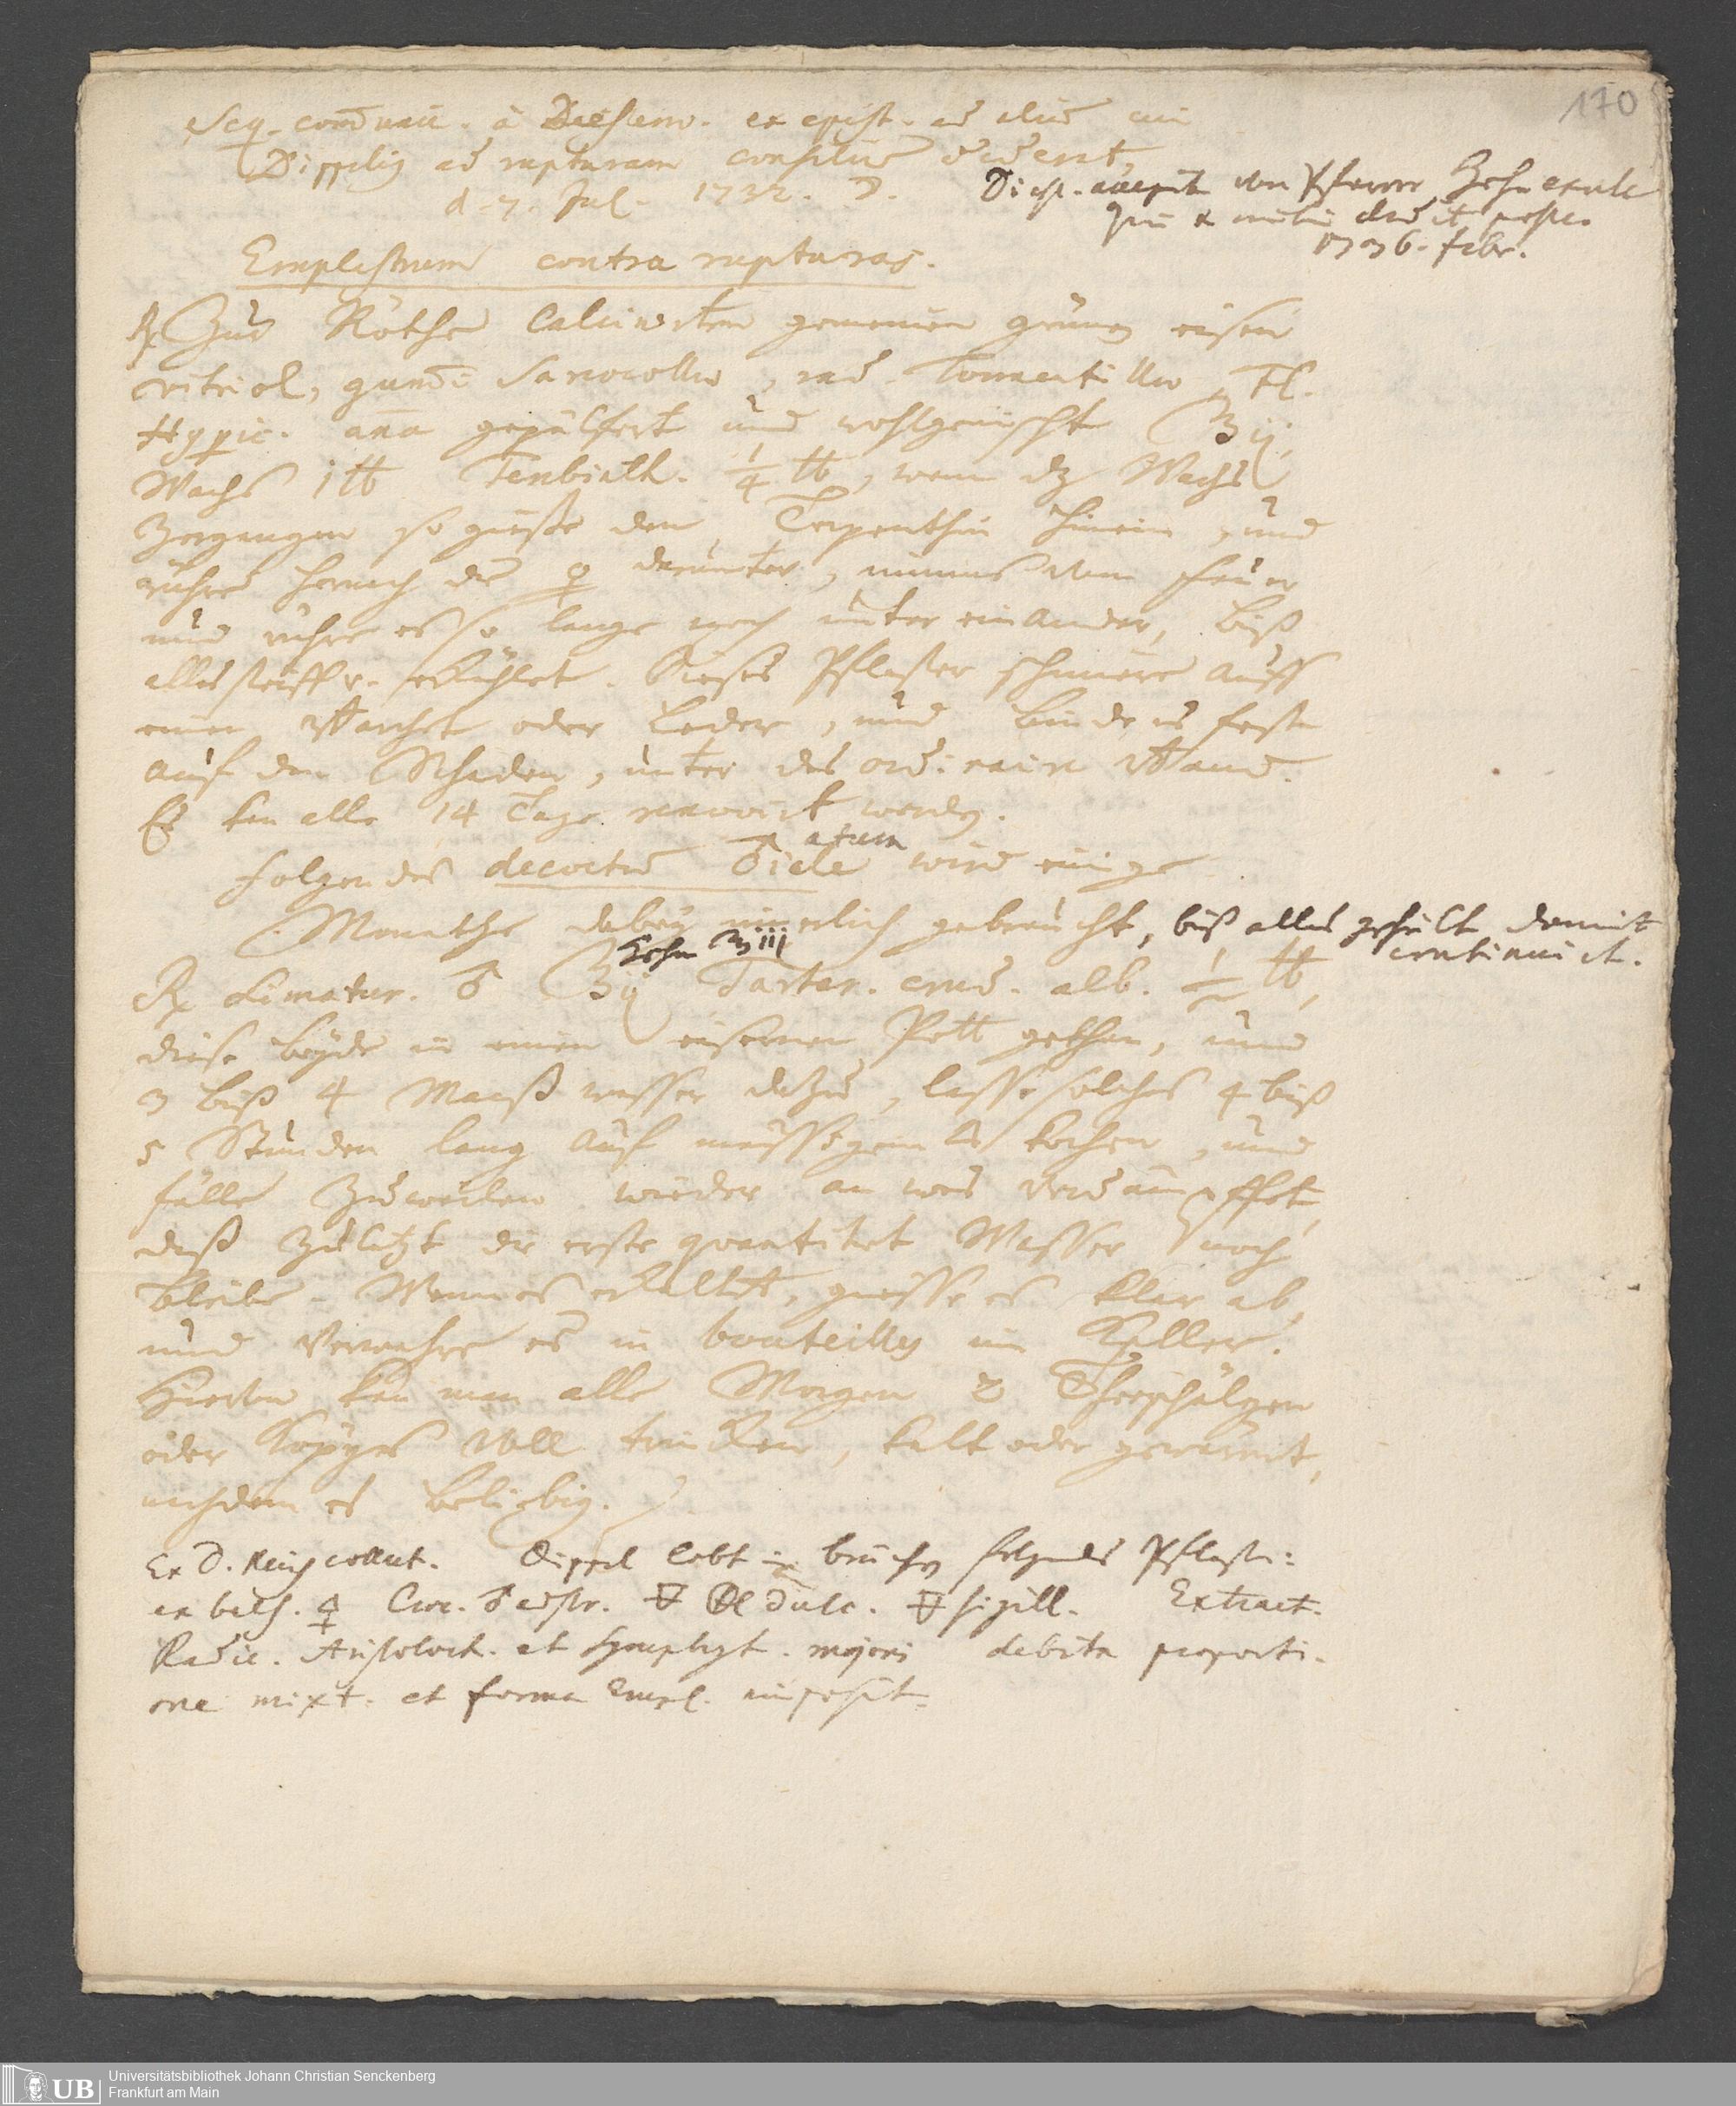 170
Seq. com̅unic. à Diesenio. ex epist. ad illud cui
Dippelig ad rupturam consiliu dederit,
d. 7. Jul. 1732. D.
Diesf. accepit von Pfarrer Hofn
1736. febr.
Emplastrum contra rupturas.
℞ Zur Röthe Calcinirten gemeinen grünen eisen
vitriol, gum̅i Sarcocollae, rad. Tormentillae, Fl.
Hyperic. ana gepülfert und wohlgemischt ℥ij,
Wachs 1 ℔ Terebinth. 1/4 ℔, wenn dz Wachs
Zergangen so gieße den Terpenthin hinein, und
rühre hernach die ♀ darunter, nimms vom feuer
und rühre es so lange noch unter einander, biß
alles steiff u. erkühlet. Dieses Pflaster schmiere auff
einen Barchet oder Leder, und binde es feste
auf den Schaden, unter das ordinaire Band.
Es kan alle 14 Tage renovirt werden.
folgendes decoctu ♂iale atum wird einige
Monathe dabey innerlich gebraucht, biß alles geheilt damit
continuirt.
Hofn ℥iij
℞ Limatur. ♂ ℥ij Tartar. crud. alb. 1/2 ℔,
diese beyde in einen eisernen Pott gethan, und
3 biß 4 Maaß wasser dazu, lasse solches 4 biß
5 Stunden lang auf mässigem kochen, und
fülle Zuweilen wieder an was verdämpffet,
daß zuletzt die erste quantitet Wasser noch
bleibe. Wenn es erkaltet, giesse es klar ab,
und Verwahre es in bouteilles im Keller.
Hiervon kan man alle Morgen 2 Theeschälgen
oder Köpges Voll trincken, kalt oder gewärmt,
nachdem es beliebig.
Ex D. collect. Dippel lobt in brüchen folgendes Pflaster:
ex balf. ♀ Croc. ♂ adstr. dulc. sigill. Extract.
Radic. Aristoloch. et Symphyt. majoris debita proporti-
one mixt. et forma Empl. imposit.
UB
Universitätsbibliothek Johann Christian Senckenberg
Frankfurt am Main